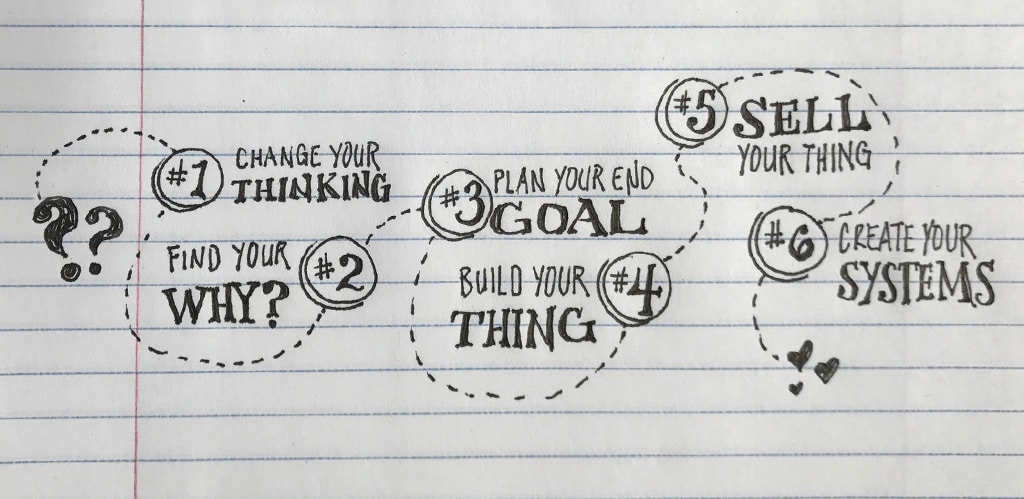 ??
#1 CHANGE YOUR
THINKING
FIND YOUR #2
WHY?
#3 PLAN YOUR END
GOAL
BUILD YOUR #4
THING
#5 SELL
YOUR THING
#6 CREATE YOUR
SYSTEMS